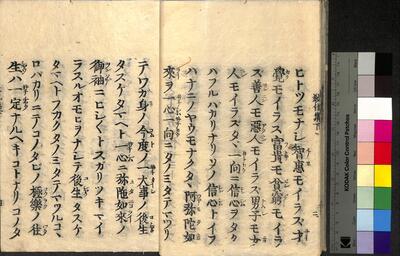 ヒトツモナシ智慧モイラス才
覺モイラス富貴モ貧窮モイラ
ス善人モ悪人モイラス男子モ女
人モイラスタヽ一向ニ信心ヲタク
ハフルハカリナリソノ信心トイフ
ハナニノヤウモナクタヽ阿弥陀如
來ヲ一心一向ニタノミタテマツリ
テワカ身ノ今度ノ一大事ノ後生
タスケタマヘト一心ニ弥陀如來ノ
御袖ニヒシトスカリツキマイ
ラスルオモヒヲナシテ後生タスケ
タマヘトフカクタノミタテマツルコヽ
ロハカリニテコノタヒノ極樂ノ往
生ハ一定ナルヘキコトナリコノタ
KODAK Color Control Patches